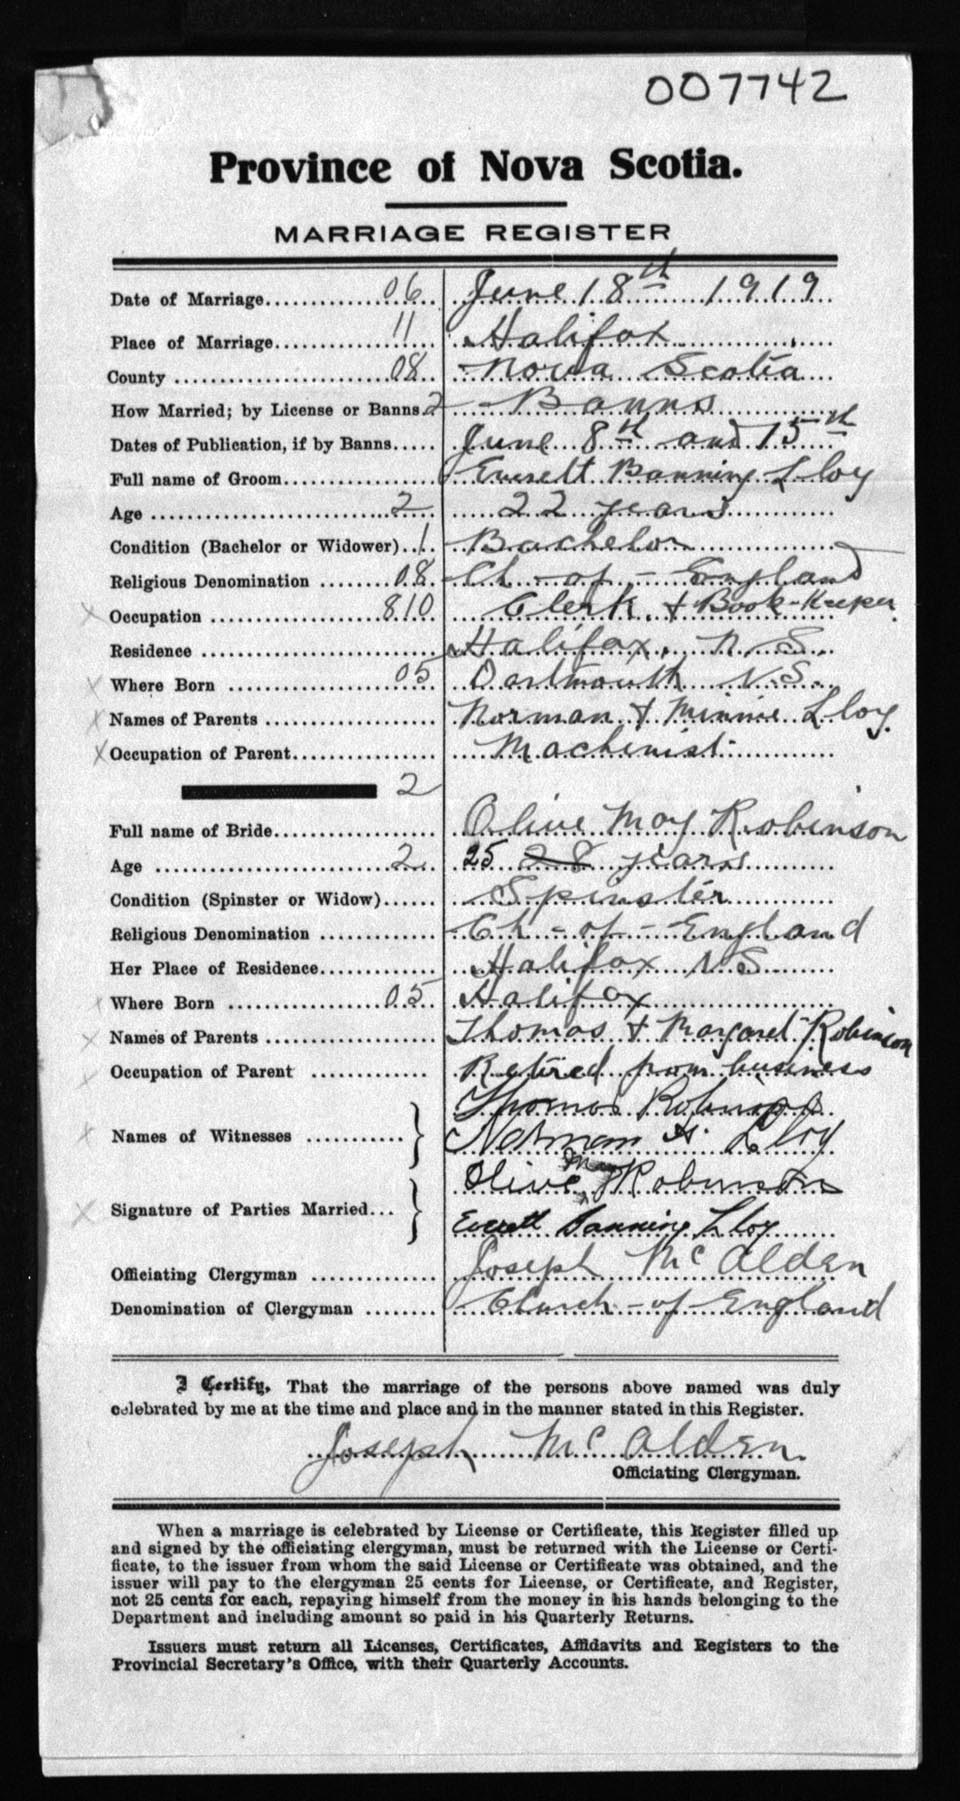 007742
Province of Nova Scotia.
MARRIAGE REGISTER
Date of Marriage 06 June 18th 1919
Place of Marriage 11 Halifax
County 08 Nova Scotia
How Married; by License or Banns 2 Banns
Dates of Publication, if by Banns June 8th and 15th
Full name of Groom Everett Banning Lloy
Age 2 22 years
Condition (Bachelor or Widower) 1 Bachelor
Religious Denomination 08 Ch-of-England
x Occupation 810 Clerk & Book-Keeper
Residence Halifax, N.S.
x Where Born 05 Dartmouth N.S.
x Names of Parents Norman & Minnie Lloy.
x Occupation of Parent Machinist
2
Full name of Bride Olive May Robinson
Age 2 25 28 years
Condition (Spinster or Widow) Spinster
Religious Denomination Ch-of-England
Her Place of Residence Halifax NS
x Where Born 05 Halifax
x Names of Parents Thomas & Margaret Robinson
x Occupation of Parent Retired from business
Thomas Robinson
x Names of Witnesses } Norman A. Lloy
Olive May Robinson
x Signature of Parties Married... }
Everett Banning Lloy
Officiating Clergyman Joseph McAlden
Denomination of Clergyman Church-of-England
I Certify, That the marriage of the persons above named was duly
celebrated by me at the time and place and in the manner stated in this Register.
Joseph McAlden.
Officiating Clergyman.
When a marriage is celebrated by License or Certificate, this Register filled up
and signed by the officiating clergyman, must be returned with the License or Certi-
ficate, to the issuer from whom the said License or Certificate was obtained, and the
issuer will pay to the clergyman 25 cents for License, or Certificate, and Register,
not 25 cents for each, repaying himself from the money in his hands belonging to the
Department and including amount so paid in his Quarterly Returns.
Issuers must return all Licenses, Certificates, Affidavits and Registers to the
Provincial Secretary's Office, with their Quarterly Accounts.